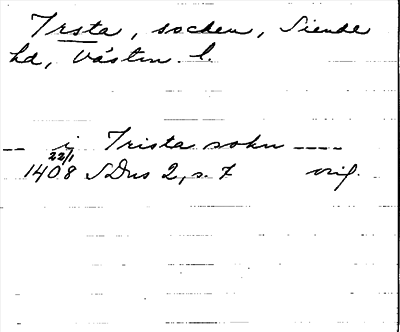 Irsta, socken, Siende
hd, Västm. l.
-- ij Irista sokn ----
22/1
1408 SDns 2, s. 7 orig.